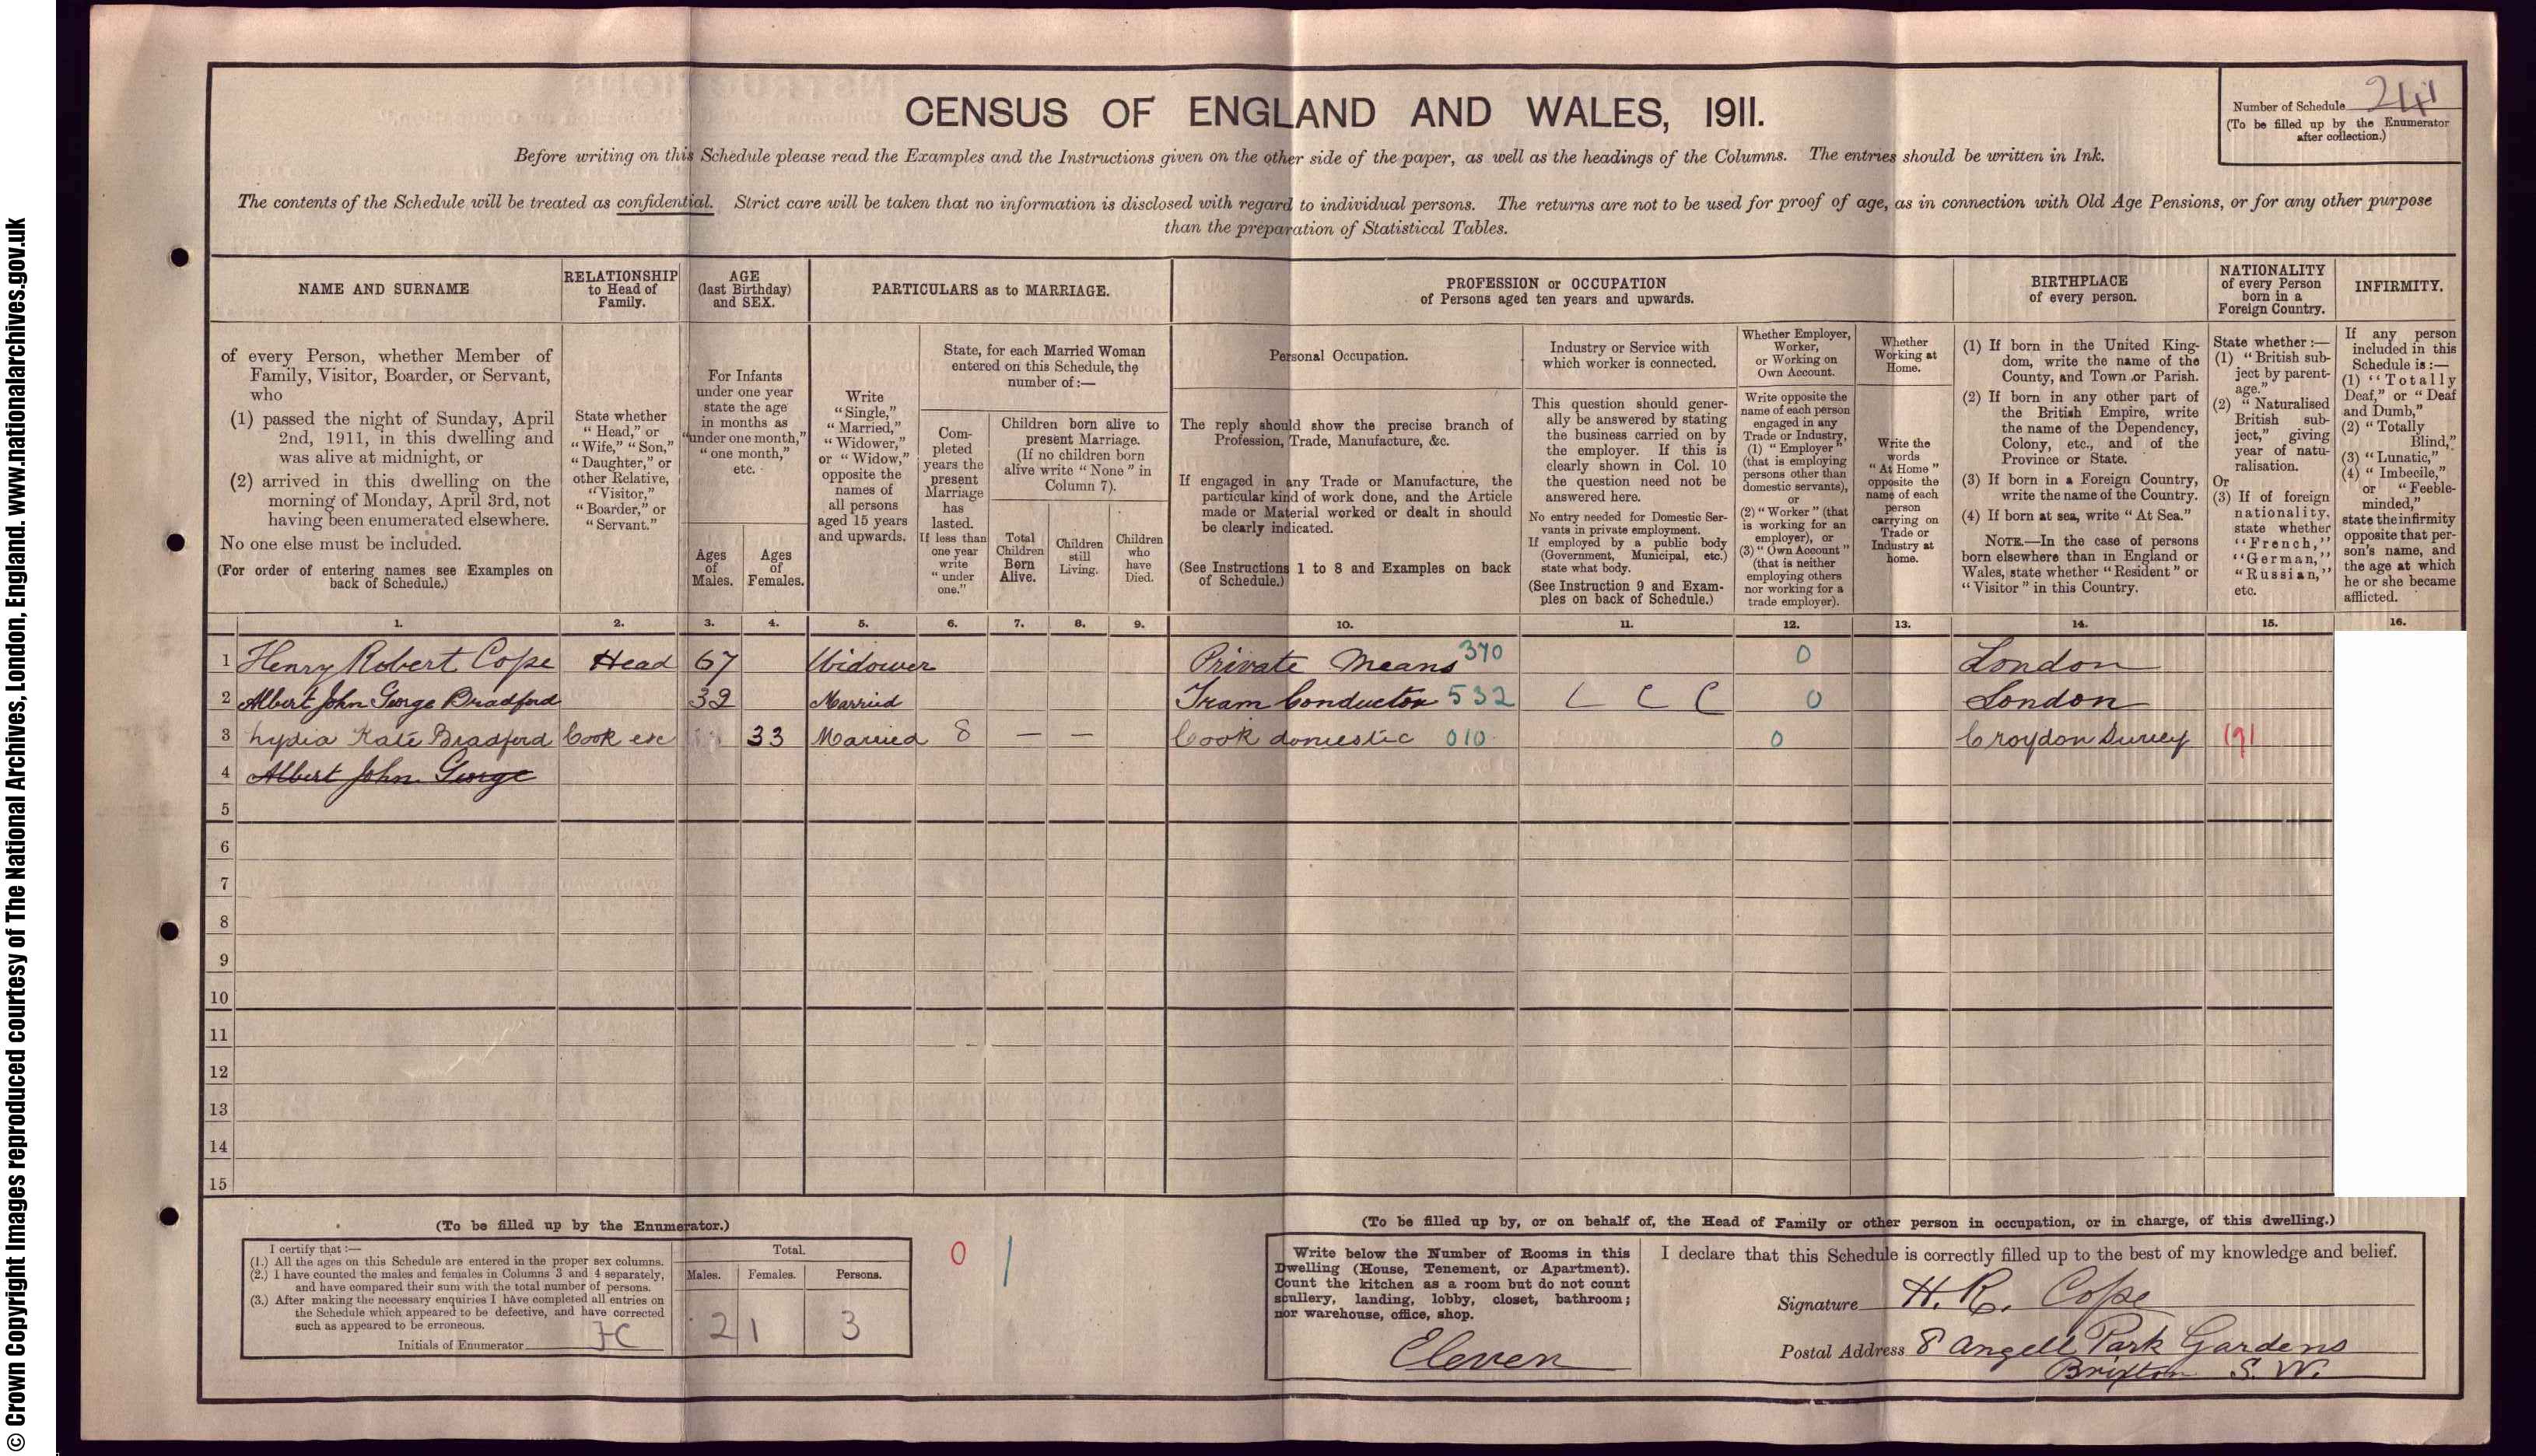 © Crown Copyright Images reproduced courtesy of The National Archives, London, England. www.nationalarchives.gov.uk
CENSUS OF ENGLAND AND WALES, 1911.
Number of Schedule 241
(To be filled up by the Enumerator
after collection.)
Before writing on this Schedule please read the Examples and the Instructions given on the other side of the paper, as well as the headings of the Columns. The entries should be written in Ink.
The contents of the Schedule will be treated as confidential. Strict care will be taken that no information is disclosed with regard to individual persons. The returns are not to be used for proof of age, as in connection with Old Age Pensions, or for any other purpose
than the preparation of Statistical Tables.
NAME AND SURNAME
of every Person, whether Member of
Family, Visitor, Boarder, or Servant,
who
(1) passed the night of Sunday, April
2nd, 1911, in this dwelling and
was alive at midnight, or
(2) arrived in this dwelling on the
morning of Monday, April 3rd, not
having been enumerated elsewhere.
No one else must be included.
(For order of entering names see Examples on
back of Schedule.)
RELATIONSHIP
to Head of
Family.
State whether
"Head," or
"Wife," "Son,"
"Daughter," or
other Relative,
"Visitor,"
"Boarder," or
"Servant."
AGE
(last Birthday)
and SEX.
For Infants
under one year
state the age
in months as
"under one month,"
"one month,"
etc.
Ages
of
Males.
Ages
of
Females.
PARTICULARS as to MARRIAGE.
Write
"Single,"
"Married,"
"Widower,"
or "Widow,"
opposite the
names of
all persons
aged 15 years
and upwards.
State, for each Married Woman
entered on this Schedule, the
number of :—
Com-
pleted
years the
present
Marriage
has
lasted.
If less than
one year
write
"under
one."
Children born alive to
present Marriage.
(If no children born
alive write "None" in
Column 7).
Total
Children
Born
Alive.
Children
still
Living.
Children
who
have
Died.
PROFESSION or OCCUPATION
of Persons aged ten years and upwards.
Personal Occupation.
The reply should show the precise branch of
Profession, Trade, Manufacture, &c.
If engaged in any Trade or Manufacture, the
particular kind of work done, and the Article
made or Material worked or dealt in should
be clearly indicated.
(See Instructions 1 to 8 and Examples on back
of Schedule.)
Industry or Service with
which worker is connected.
This question should gener-
ally be answered by stating
the business carried on by
the employer. If this is
clearly shown in Col. 10
the question need not be
answered here.
No entry needed for Domestic Ser-
vants in private employment.
If employed by a public body
(Government, Municipal, etc.)
state what body.
(See Instruction 9 and Exam-
ples on back of Schedule.)
Whether Employer,
Worker,
or Working on
Own Account.
Write opposite the
name of each person
engaged in any
Trade or Industry,
(1) "Employer"
(that is employing
persons other than
domestic servants),
or
(2) "Worker" (that
is working for an
employer), or
(3) "Own Account"
(that is neither
employing others
nor working for a
trade employer).
Whether
Working at
Home.
Write the
words
"At Home"
opposite the
name of each
person
carrying on
Trade or
Industry at
home.
BIRTHPLACE
of every person.
(1) If born in the United King-
dom, write the name of the
County, and Town or Parish.
(2) If born in any other part of
the British Empire, write
the name of the Dependency,
Colony, etc., and of the
Province or State.
(3) If born in a Foreign Country,
write the name of the Country.
(4) If born at sea, write "At Sea."
NOTE.—In the case of persons
born elsewhere than in England or
Wales, state whether "Resident" or
"Visitor" in this Country.
NATIONALITY
of every Person
born in a
Foreign Country.
State whether :—
(1) "British sub-
ject by parent-
age."
(2) "Naturalised
British sub-
ject," giving
year of natu-
ralisation.
Or
(3) If of foreign
nationality,
state whether
"French,"
"German,"
"Russian,"
etc.
INFIRMITY.
If any person
included in this
Schedule is :—
(1) "Totally
Deaf," or "Deaf
and Dumb,"
(2) "Totally
Blind,"
(3) "Lunatic,"
(4) "Imbecile,"
or "Feeble-
minded,"
state the infirmity
opposite that per-
son's name, and
the age at which
he or she became
afflicted.
1. 2. 3. 4. 5. 6. 7. 8. 9. 10. 11. 12. 13. 14. 15. 16.
1 Henry Robert Cope Head 67 Widower Private Means 370 0 London
2 Albert John George Bradford 32 Married Tram Conductor 532 L C C 0 London
3 Lydia Kate Bradford Cook etc 33 Married 8 — — Cook domestic 010 0 Croydon Surrey 191
4 Albert John George
5
6
7
8
9
10
11
12
13
14
15
(To be filled up by the Enumerator.)
I certify that :—
(1.) All the ages on this Schedule are entered in the proper sex columns.
(2.) I have counted the males and females in Columns 3 and 4 separately,
and have compared their sum with the total number of persons.
(3.) After making the necessary enquiries I have completed all entries on
the Schedule which appeared to be defective, and have corrected
such as appeared to be erroneous.
Initials of Enumerator
Total.
Males. Females. Persons.
2 1 3
0 1
(To be filled up by, or on behalf of, the Head of Family or other person in occupation, or in charge, of this dwelling.)
Write below the Number of Rooms in this
Dwelling (House, Tenement, or Apartment).
Count the kitchen as a room but do not count
scullery, landing, lobby, closet, bathroom;
nor warehouse, office, shop.
Eleven
I declare that this Schedule is correctly filled up to the best of my knowledge and belief.
Signature H. R. Cope
Postal Address 8 Angell Park Gardens
Brixton S. W.